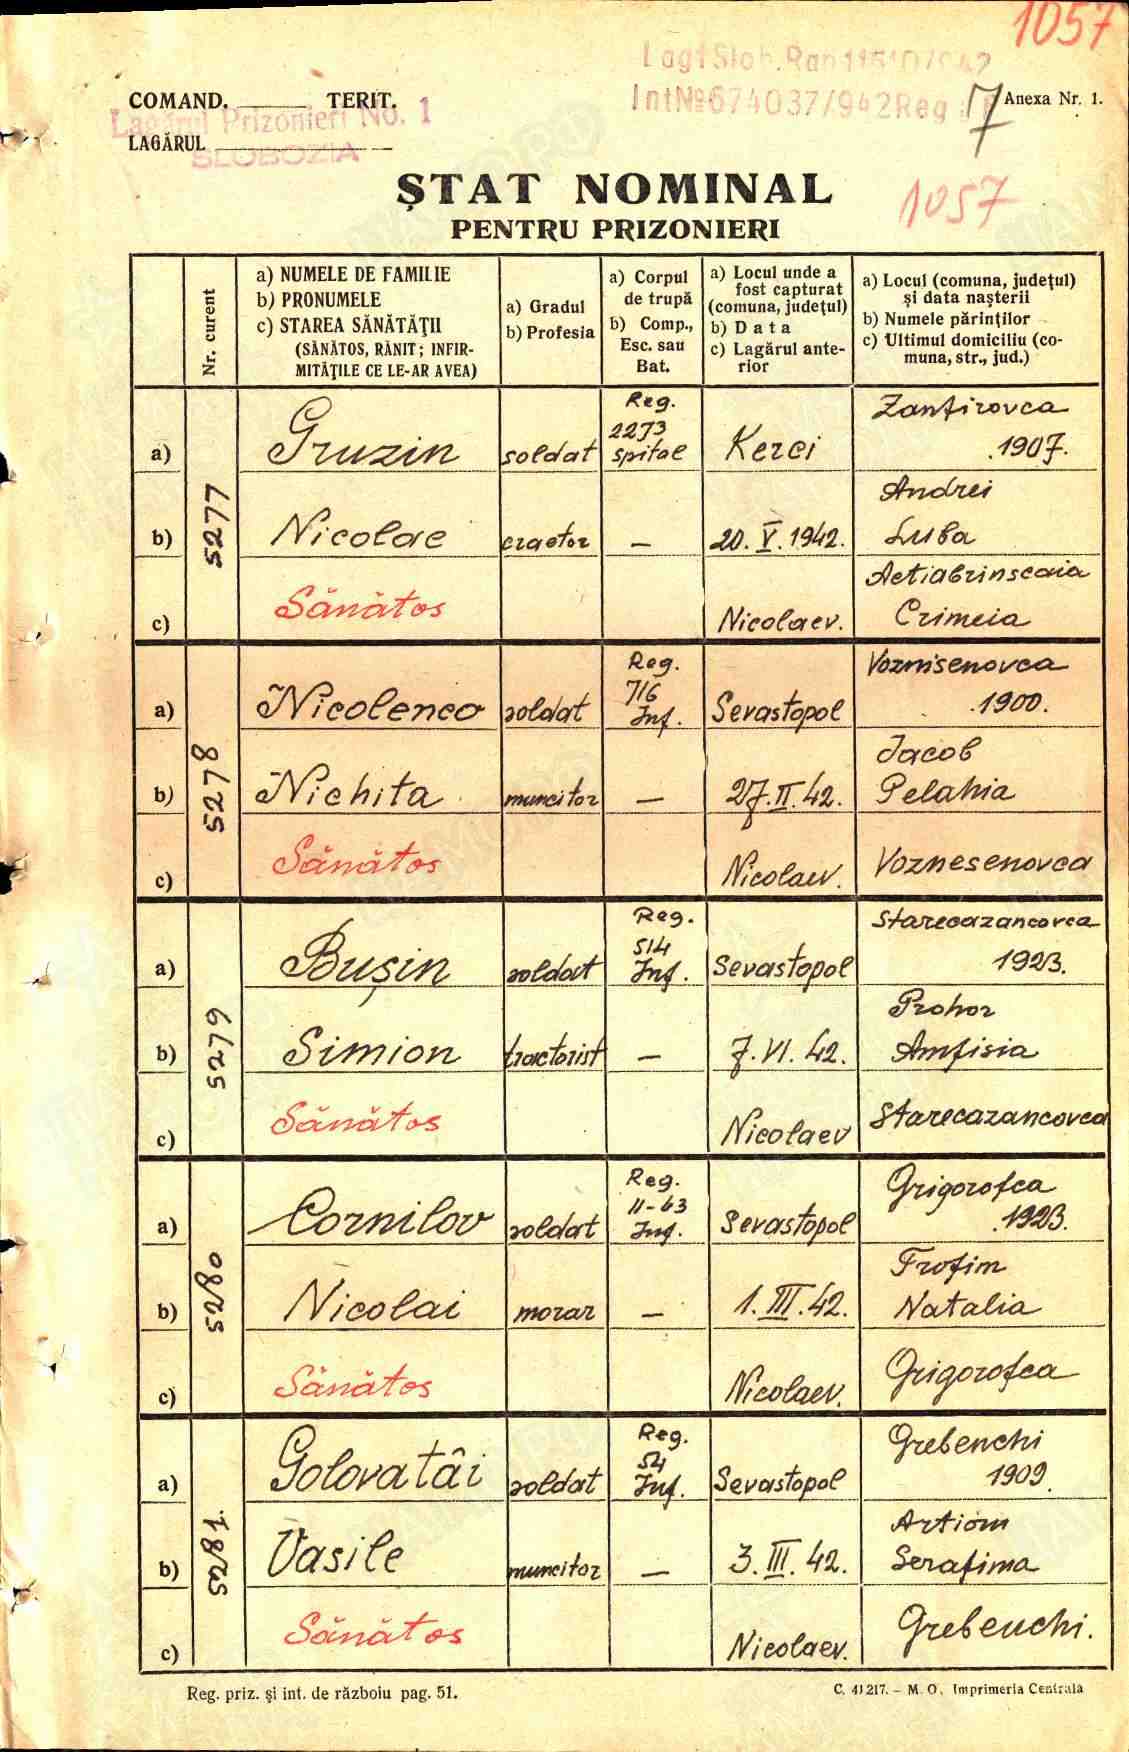 1057
Lag 1 Slob. Ran 11510/942
Int № 674037/942 Reg
7
Anexa Nr. 1.
COMAND. TERIT.
Lagărul Prizonieri No. 1
LAGĂRUL
SLOBOZIA
ȘTAT NOMINAL
1057
PENTRU PRIZONIERI
Nr. curent
a) NUMELE DE FAMILIE
b) PRONUMELE
c) STAREA SĂNĂTĂŢII
(SĂNĂTOS, RĂNIT; INFIR-
MITĂŢILE CE LE-AR AVEA)
a) Gradul
b) Profesia
a) Corpul
de trupă
b) Comp.,
Esc. sau
Bat.
a) Locul unde a
fost capturat
(comuna, judeţul)
b) Data
c) Lagărul ante-
rior
a) Locul (comuna, judeţul)
și data nașterii
b) Numele părinţilor
c) Ultimul domiciliu (co-
muna, str., jud.)
5277
a) Gruzin soldat Reg. 2273 spital Kerci Zanfirovca 1907.
b) Nicolae cractor — 20. V. 1942. Andrei Luba
c) Sănătos Nicolaev. Actiabrinscaia Crimeia
5278
a) Nicolenco soldat Reg. 716 Inf. Sevastopol Voznisenovca 1900.
b) Nichita muncitor — 27. II. 42. Jacob Pelahia
c) Sănătos Nicolaev. Voznesenovca
5279
a) Bușin soldat Reg. 514 Inf. Sevastopol Starecazancovca 1923.
b) Simion tractorist — 7. VI. 42. Prohor Amfisia
c) Sănătos Nicolaev Starecazancovca
5280
a) Cornilov soldat Reg. 11-63 Inf. Sevastopol Grigorofca 1923.
b) Nicolai morar — 1. III. 42. Trofim Natalia
c) Sănătos Nicolaev. Grigorofca
5281.
a) Golovatâi soldat Reg. 54 Inf. Sevastopol Grebenchi 1909
b) Vasile muncitor — 3. III. 42. Artiom Serafima
c) Sănătos Nicolaev. Grebenchi.
Reg. priz. și int. de războiu pag. 51.
C. 41217. – M. O. Imprimeria Centrala